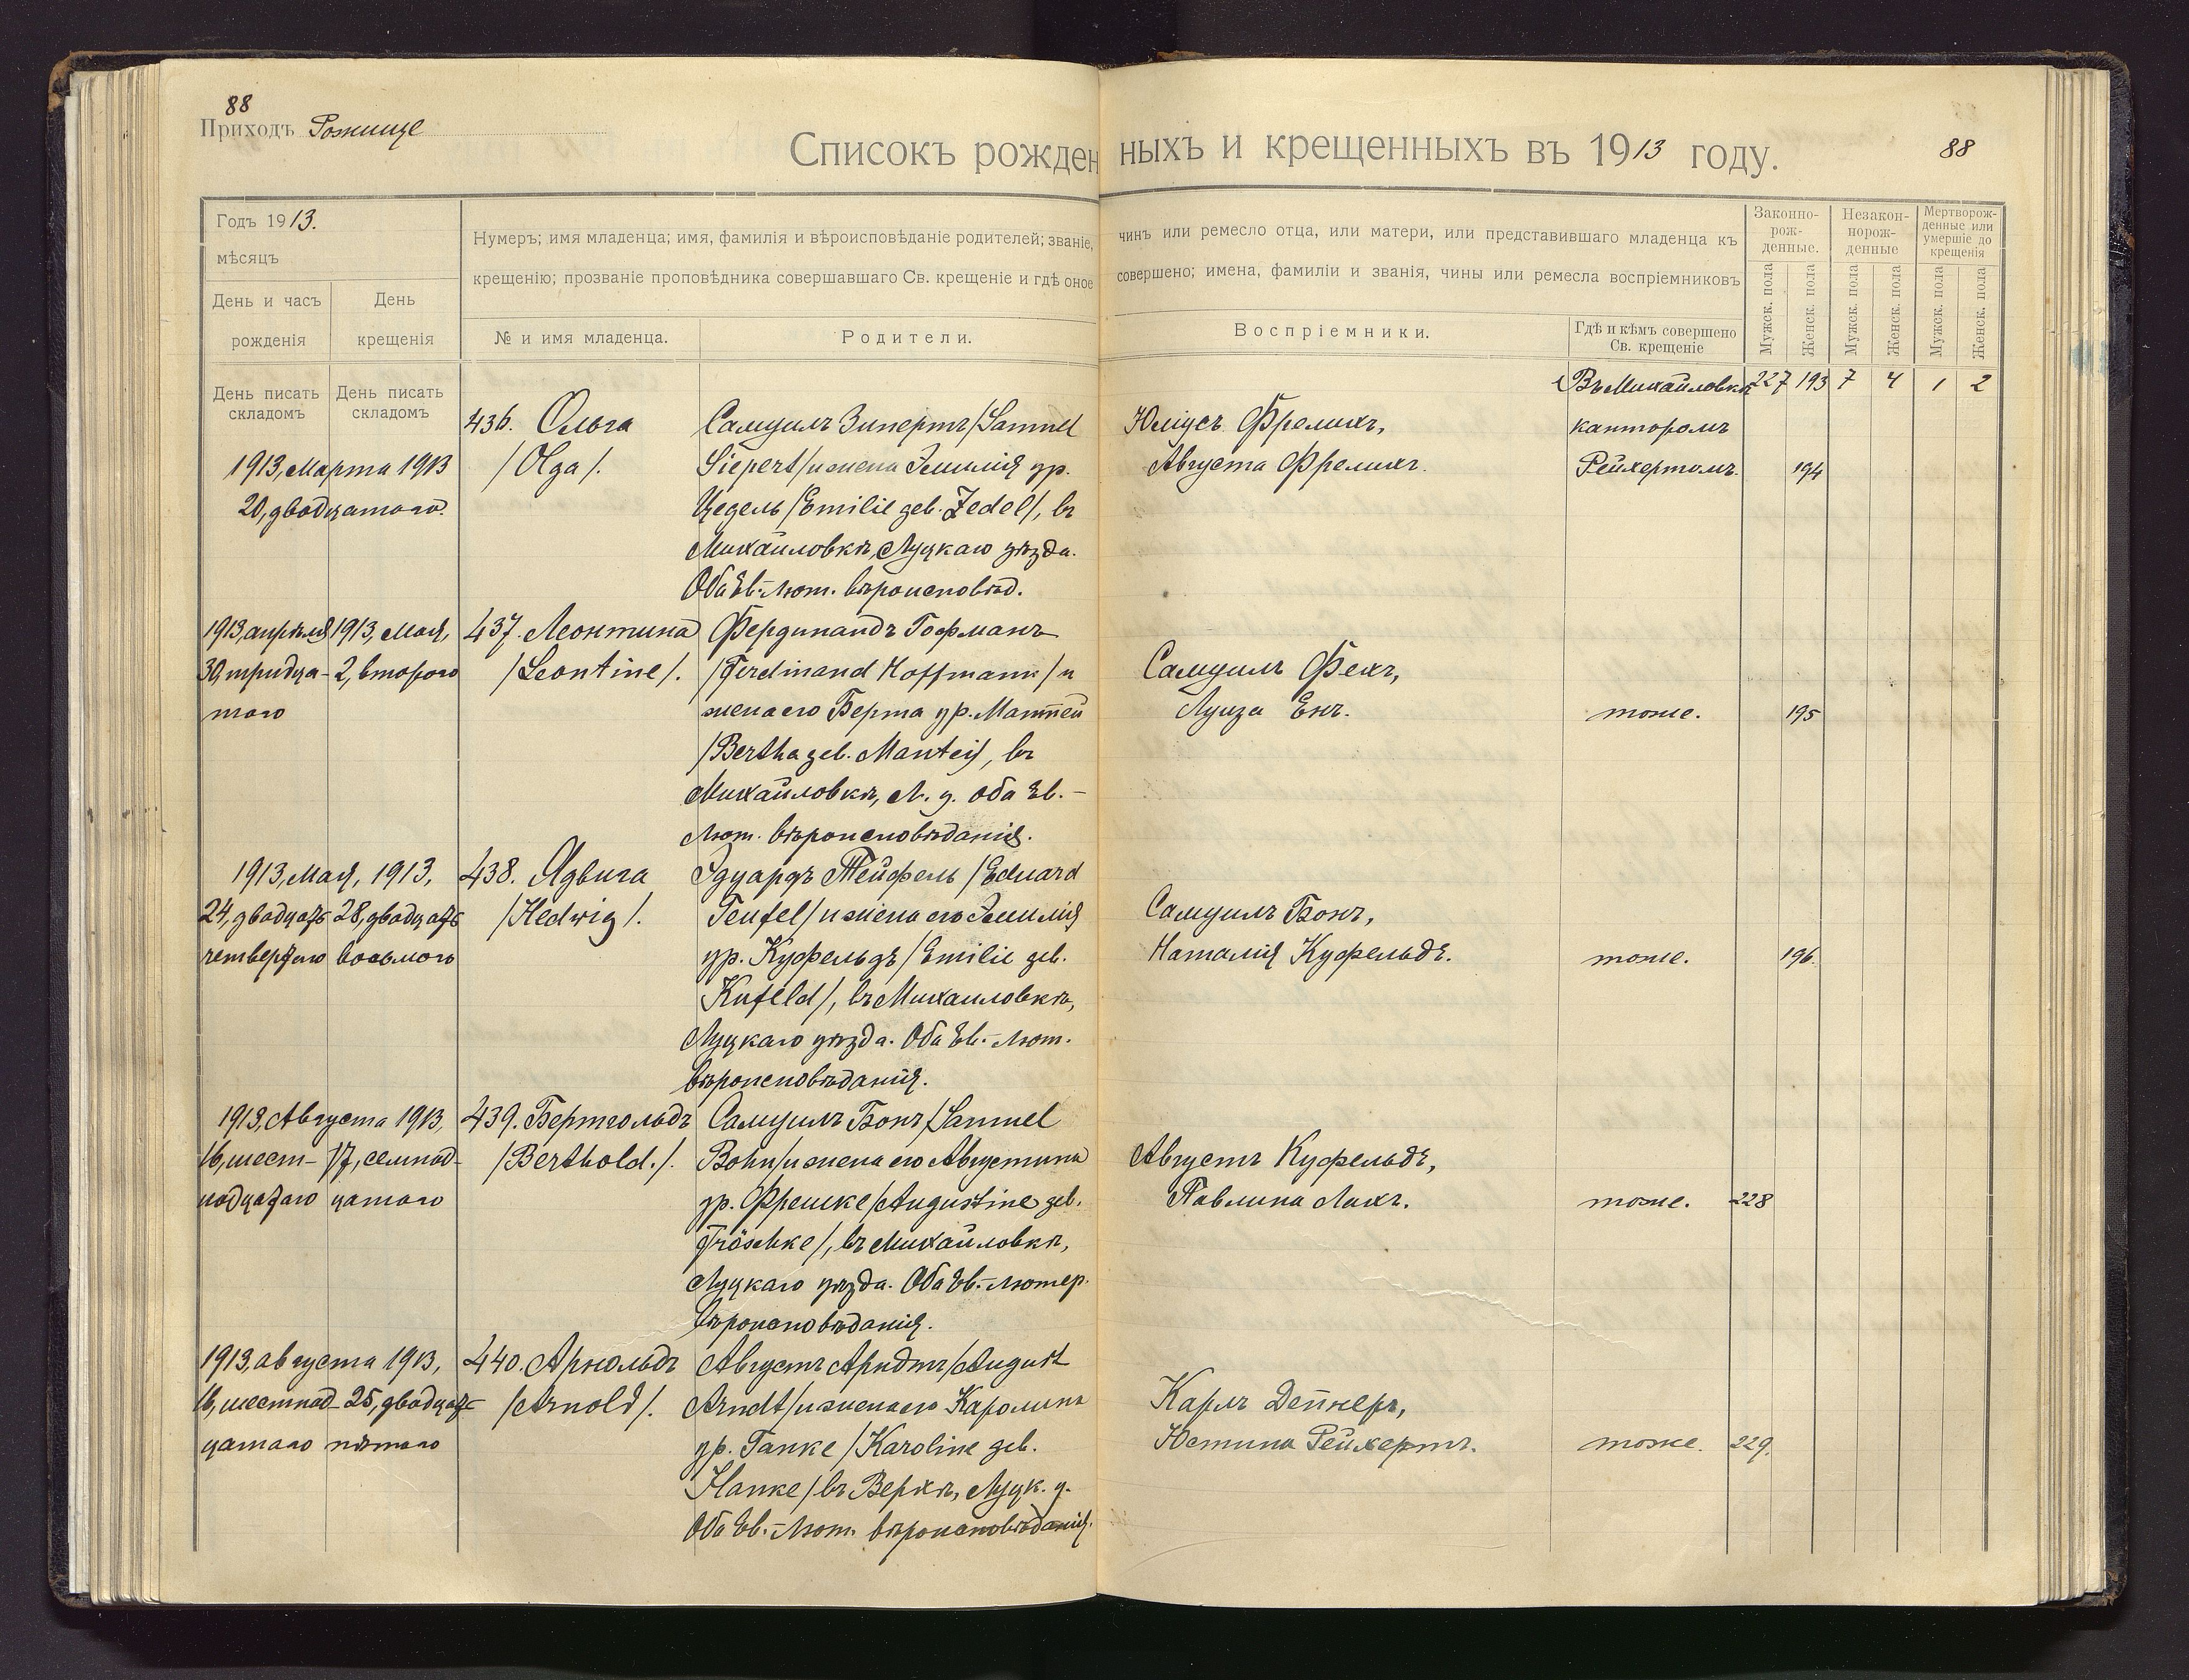 88
Приходъ Рожище
Списокъ рожденныхъ и крещенныхъ въ 1913 году.
88
Годъ 1913.
мѣсяцъ
День и часъ рожденія
День крещенія
Нумеръ; имя младенца; имя, фамилія и вѣроисповѣданіе родителей; званіе, чинъ или ремесло отца, или матери, или представившаго младенца къ
крещенію; прозваніе проповѣдника совершавшаго Св. крещеніе и гдѣ оное совершено; имена, фамиліи и званія, чины или ремесла воспріемниковъ
№ и имя младенца.
Родители.
Воспріемники.
Гдѣ и кѣмъ совершено
Св. крещеніе
Законно-
рож-
денные.
Незакон-
норож-
денные
Мертворож-
денные или
умершіе до
крещенія
Мужск. пола
Женск. пола
Мужск. пола
Женск. пола
Мужск. пола
Женск. пола
День писать
складомъ
День писать
складомъ
Въ Михайловкѣ 227 193 7 4 1 2
436. Ольга
/Olga/.
1913, Марта 1913
20, двадцатаго.
Самуилъ Зипертъ /Samuel
Siepert/ и жена Эмилія ур.
Цедель /Emilie geb. Zedel/, въ
Михайловкѣ, Луцкаго уѣзда.
Оба Ев.-Лют. вѣроисповѣд.
Юліусъ Фрелихъ,
Августа Фрелихъ.
канторомъ
Рейхертомъ.
194
1913, апрѣля
30, тридца-
таго
1913, Мая,
2, второго
437. Леонтина
/Leontine/.
Фердинандъ Гофманъ
/Ferdinand Hoffmann/ и
жена его Берта ур. Мантей
/Bertha geb. Mantei/, въ
Михайловкѣ, Л. у. Оба Ев.-
Лют. вѣроисповѣданія.
Самуилъ Фехъ,
Луиза Енъ.
тоже.
195
1913, Мая, 1913,
24, двадцать
четвертаго
28, двадцать
восьмого
438. Ядвига
/Hedwig/.
Эдуардъ Тейфель /Eduard
Teufel/ и жена его Эмилія
ур. Куфельдъ /Emilie geb.
Kufeld/, въ Михаиловкѣ,
Луцкаго уѣзда. Оба Ев.-Лют.
вѣроисповѣданія.
Самуилъ Бонъ,
Наталія Куфельдъ.
тоже.
196.
1913, Августа 1913,
16, шест-
надцатаго
17, семнад-
цатаго
439. Бертгольдъ
/Berthold./.
Самуилъ Бонъ /Samuel
Bohn/ и жена его Августина
ур. Фрешке /Augustine geb.
Fröschke/, въ Михайловкѣ,
Луцкаго уѣзда. Оба Ев.-Лютер.
вѣроисповѣданія.
Августъ Куфельдъ,
Павлина Лахъ.
тоже.
228
1913, августа 1913,
16, шестнад-
цатаго
25, двадцать
пятаго
440. Арнольдъ
/Arnold/.
Августъ Арндтъ /August
Arndt/ и жена его Каролина
ур. Ганке /Karoline geb.
Hanke/ въ Верхѣ, Луцк. у.
Оба Ев.-Лют. вѣроисповѣданія.
Карлъ Депнеръ,
Юстина Рейхертъ.
тоже.
229.